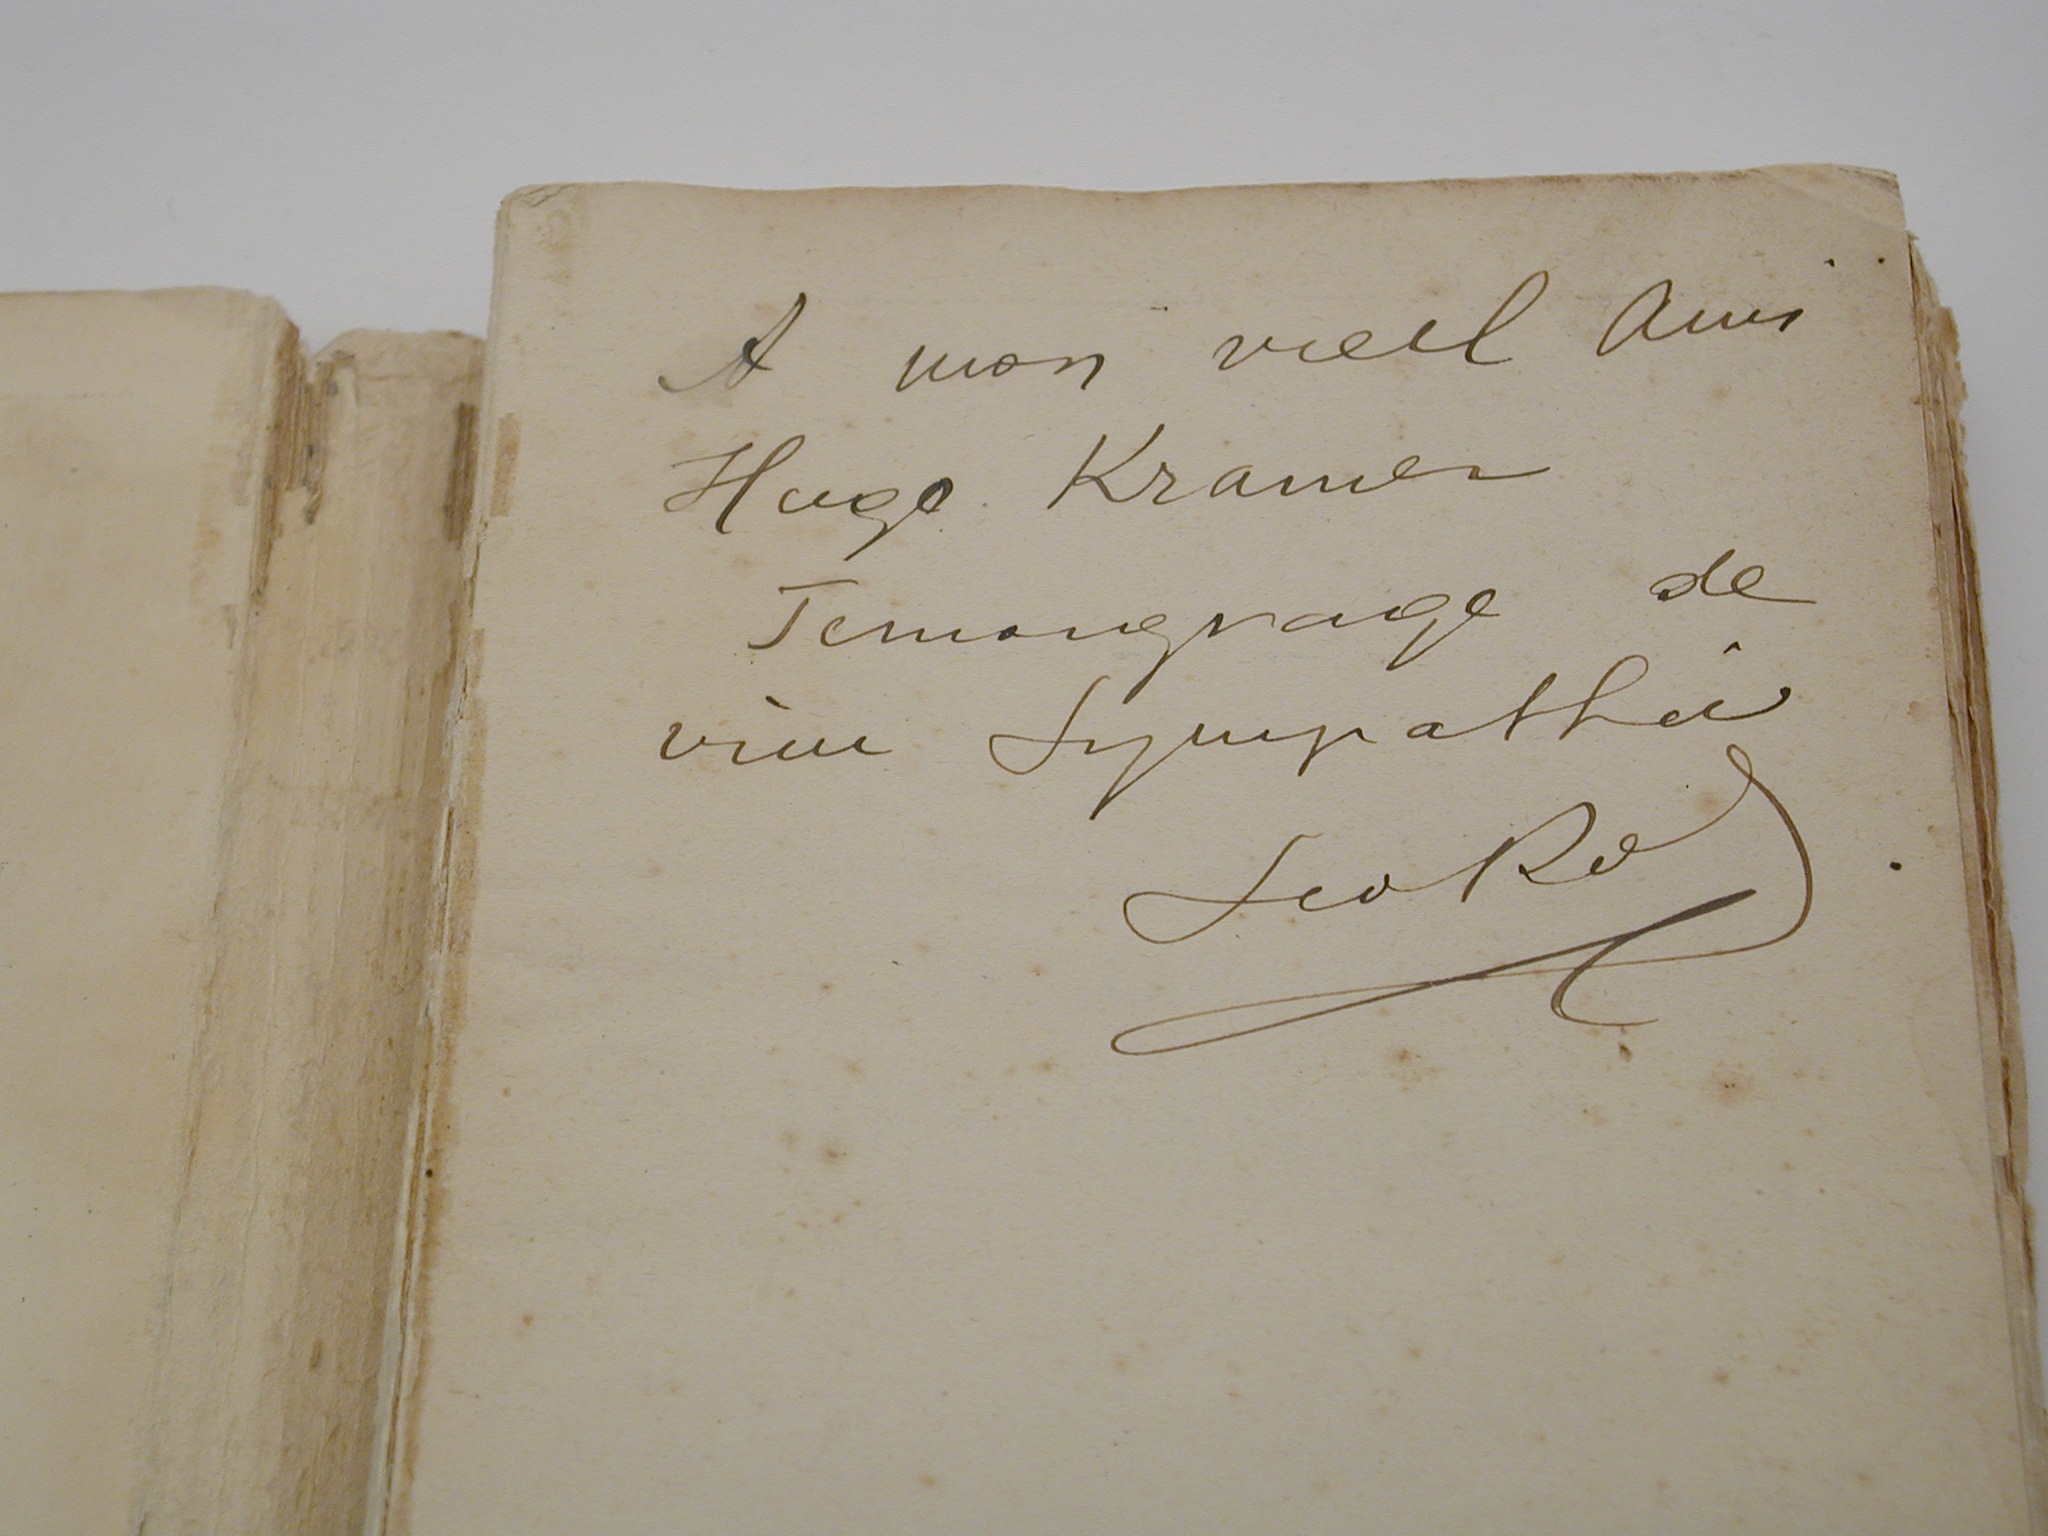 A mon vieil Ami
Hugo Kramer
Temoignage de
vive Sympathie
Leo